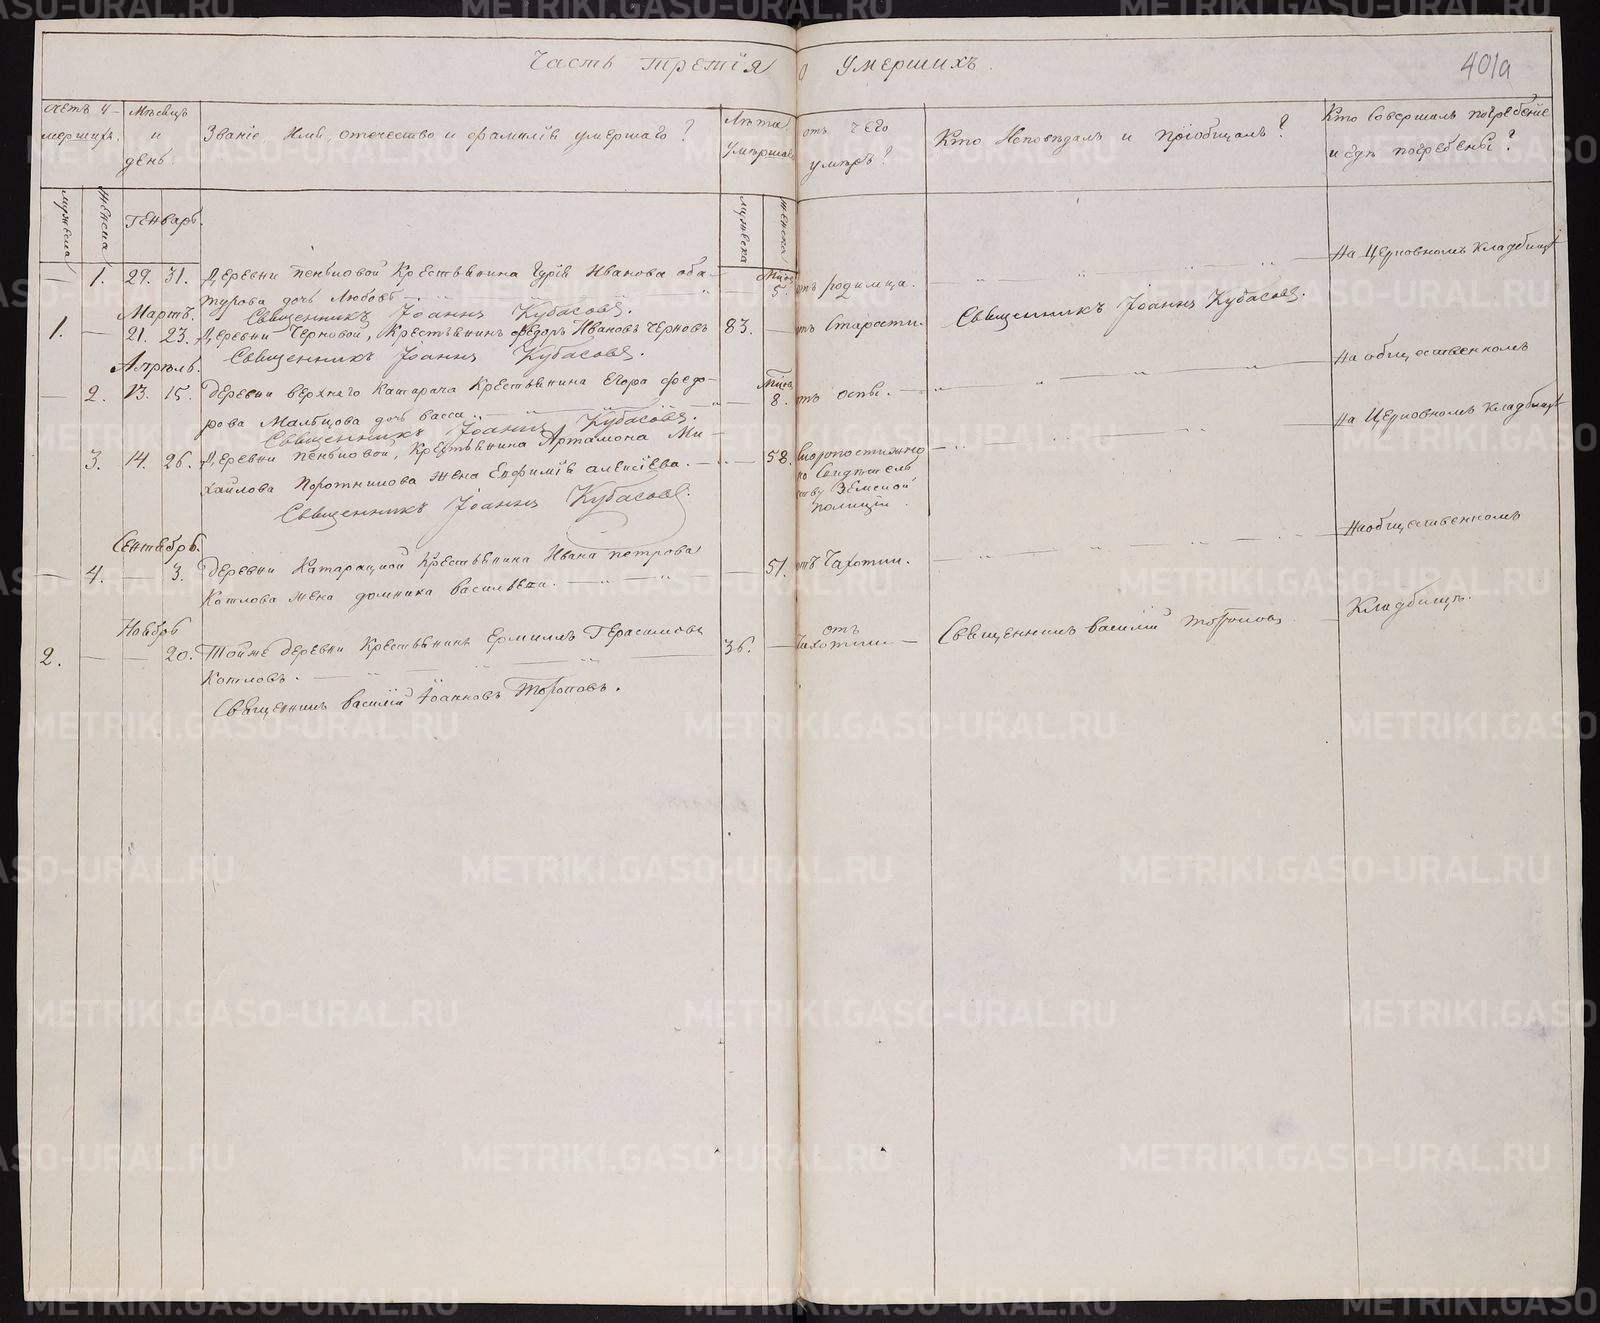 Часть третія о умершихъ.
401а
Счетъ у-
мершихъ.
Мѣсяцъ
и
день.
Званіе Имя, отечество и фамилія умершаго?
Лѣта
умершаго
отъ чего
умеръ?
Кто Исповѣдалъ и пріобщалъ?
Кто Совершалъ погребеніе
и гдѣ погребены?
мужеска
женска
Генварь.
мужеска
женска
— 1. 29. 31. Деревни пеньковой Крестьянина Гурія Иванова оба-
турова дочь Любовь
5. отъ родимца.
На Церковномъ кладбищѣ
Мартъ.
Священникъ Іоаннъ Кубасовъ.
1. — 21. 23. Деревни Черновой, Крестьянинъ Федоръ Ивановъ Черновъ 83. — отъ Старости. Священникъ Іоаннъ Кубасовъ.
Священникъ Іоаннъ Кубасовъ.
На общественномъ
Апрѣль.
— 2. 13. 15. Деревни верхняго Катарача Крестьянина Егора Федо-
рова Мальцова дочь васса
8. отъ оспы.
На Церковномъ кладбищѣ
Священникъ Іоаннъ Кубасовъ.
3. 14. 26. Деревни пеньковой, Крестьянина Артамона Ми-
хайлова Поротникова жена Евфимія алексіева. — 58. Скоропостижно
по Свидѣтель
ству Земской
полиціи.
Священникъ Іоаннъ Кубасовъ.
На общественномъ
Сентябрь.
— 4. — 3. Деревни Катарацкой Крестьянина Ивана петрова
Котлова жена домника васильева. — 51. отъ Чахотки.
Кладбищѣ.
Ноябрь
2. — — 20. Тойже деревни Крестьянинъ Ермилъ Герасимовъ
Котловъ.
36. — отъ
Чахотки — Священникъ василій Топорковъ
Священникъ василій Іоанновъ Топорковъ.
METRIKI.GASO-URAL.RU